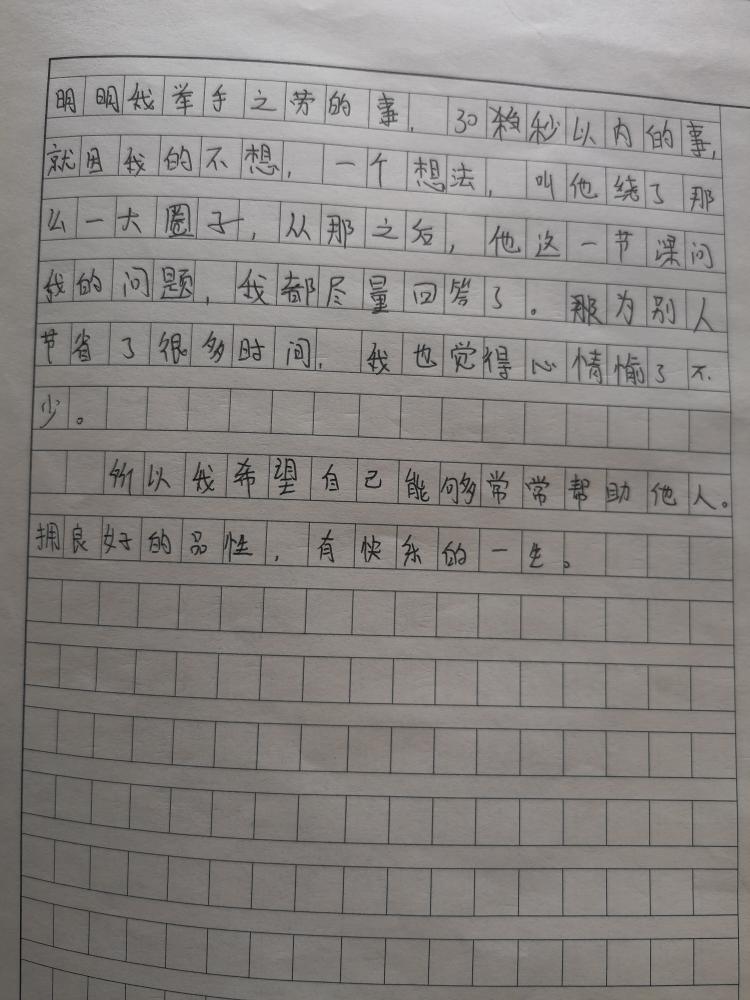 明明我举手之劳的事，30秒以内的事，
就因我的不想，一个想法，叫他绕了那
么一大圈子，从那之后，他这一节课问
我的问题，我都尽量回答了。那为别人
节省了很多时间，我也觉得心情愉了不
少。
所以我希望自己能够常常帮助他人。
拥良好的品性，有快乐的一生。